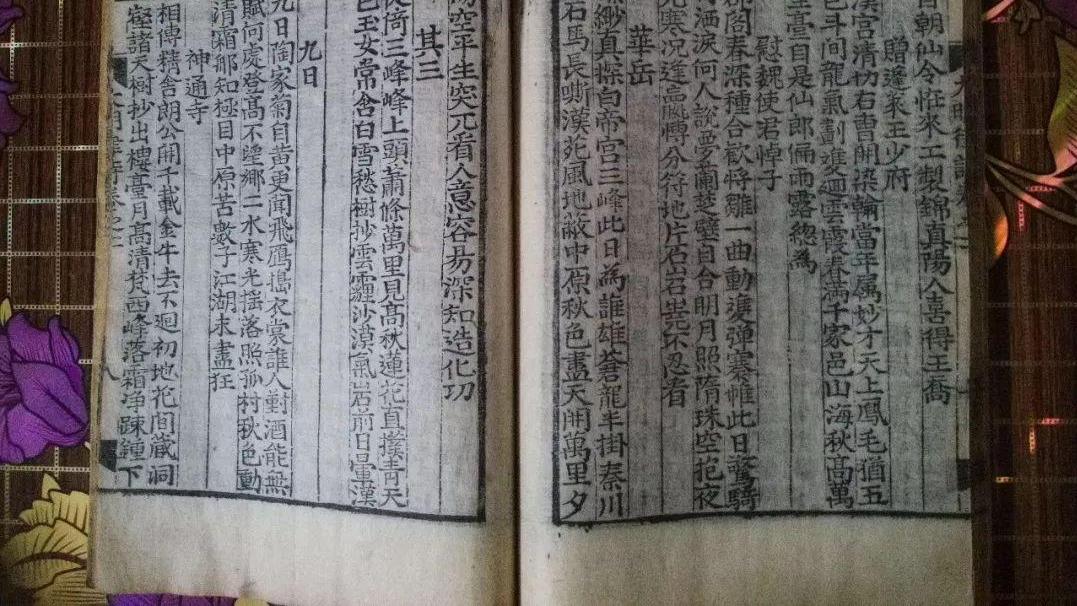 朝仙令恠來工製錦真陽人喜得王喬
贈蓬萊王少府
漢宮清切右曹開染翰當年属妙才天上鳳毛猶五
色斗間龍氣劃雙迴雲霞春滿千家邑山海秋高萬
里臺自是仙郎偏雨露總為
慰魏使君悼子
郡閣春深種合歡將雛一曲動邊彈褰帷此日驚騎
洒淚何人說夢蘭楚璧自合明月照隋珠空抱夜
光寒况逢羸愽分符地片石岩岩不忍看
華岳
緲真探白帝宮三峰此日為誰雄蒼龍半掛秦川
石馬長嘶漢苑風地蔽中原秋色盡天開萬里夕
陽空平生突兀看人意容易深知造化功
其三
徙倚三峰峰上頭蕭條萬里見髙秋蓮花直擁青天
色玉女常含白雪愁樹抄雲霾沙漠氣岩前日暈漢
九日
九日陶家菊自黄更聞飛鴈搗衣裳誰人對酒能無
賦何處登髙不望鄉二水寒光揺落照孤村秋色動
清霜郍知極目中原苦數子江湖未盡狂
神通寺
相傳精舍朗公開千載金牛去不迴初地花間藏洞
壑諸天樹抄出樓臺月髙清梵西峰落霜淨疎鐘下
八